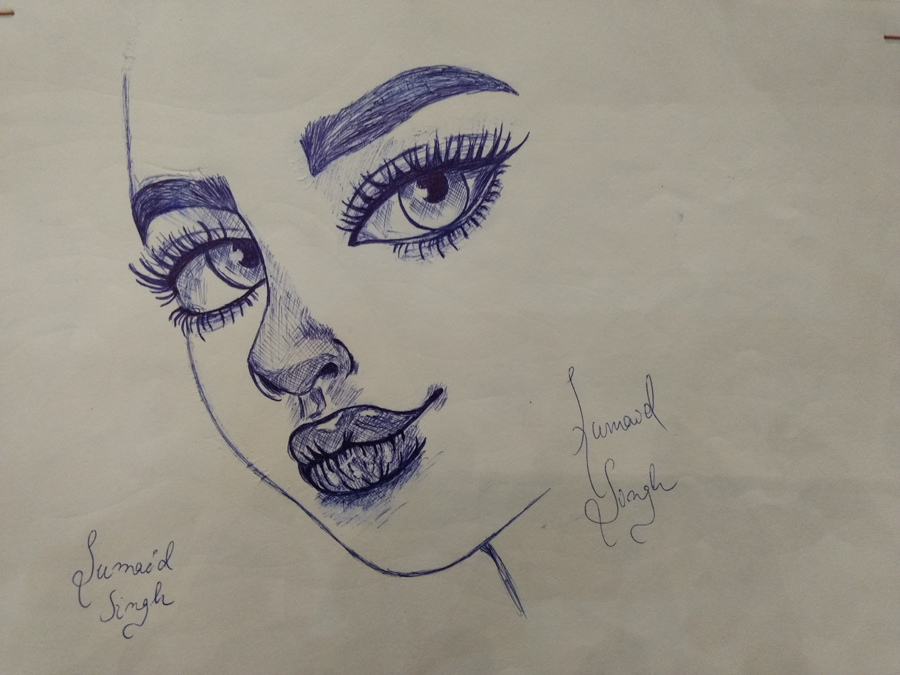 Sumaid
Singh
Sumaid
Singh